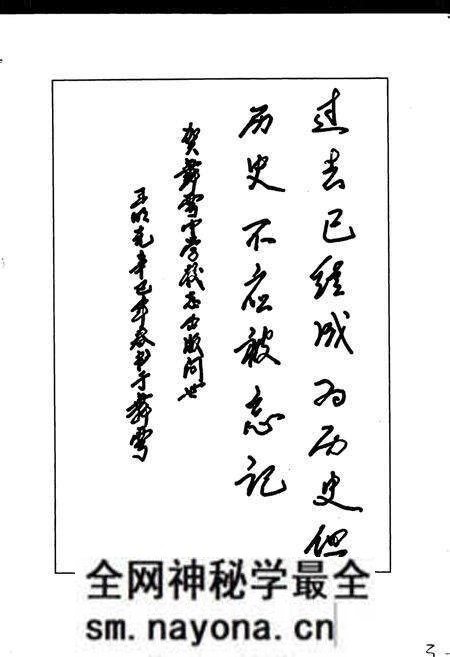 过去已经成为历史但
历史不应被忘记
贺舞雩中学校志出版问世
辛巳年春书于舞雩
全网神秘学最全
sm.nayona.cn